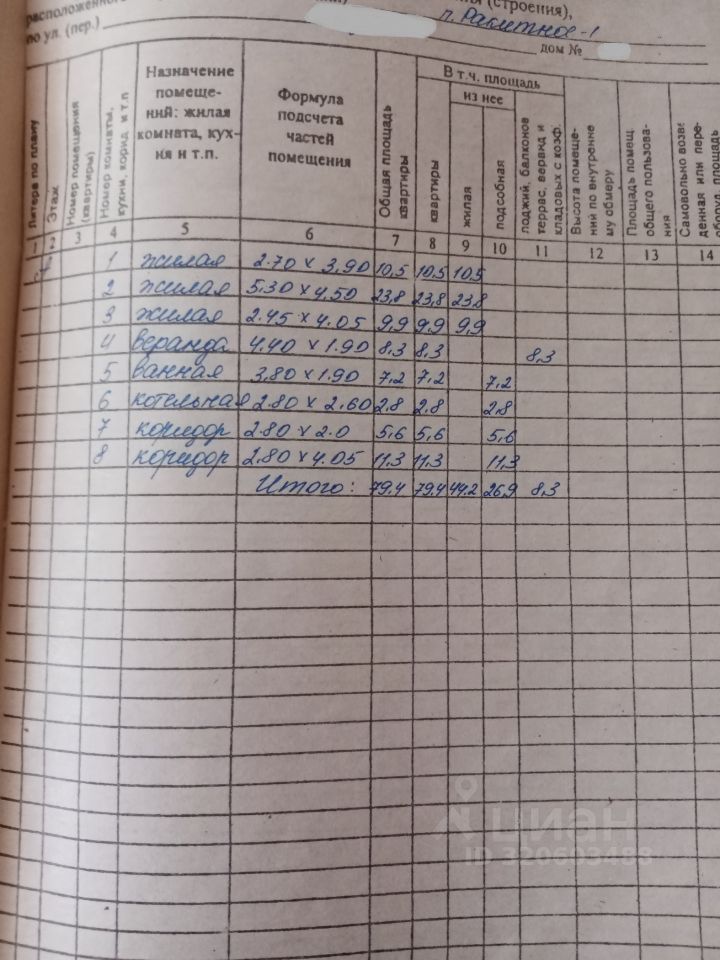 расположенного
(строения),
п. Ракитное-1
по ул. (пер.)
дом №
Литера по плану
Этаж
Номер помещения (квартиры)
Номер комнаты, кухни, корид. и т.п
Назначение помеще-
ний: жилая
комната, кух-
ня и т.п.
Формула
подсчета
частей
помещения
Общая площадь квартиры
В т.ч. площадь
из нее
квартиры
жилая
подсобная
лоджий, балконов террас, веранд и кладовых с коэф.
Высота помеще-
ний по внутренне
му обмеру
Площадь помещ.
общего пользова-
ния
Самовольно возве
денная или пере-
оборуд. площадь
1 2 3 4 5 6 7 8 9 10 11 12 13 14
1 жилая 2.70 х 3,90 10,5 10,5 10,5
2 жилая 5,30 х 4,50 23,8 23,8 23,8
3 жилая 2.45 х 4.05 9,9 9,9 9,9
4 веранда 4.40 х 1.90 8,3 8,3 8,3
5 ванная 3,80 х 1.90 7,2 7,2 7,2
6 котельная 2.80 х 2.60 2,8 2,8 2,8
7 коридор 2.80 х 2.0 5,6 5,6 5,6
8 коридор 2,80 х 4.05 11,3 11,3 11,3
Итого: 79,4 79,4 44.2 26,9 8,3
циан
ID 320603488